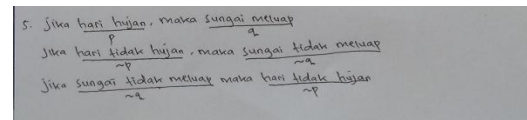 5. Jika hari hujan, maka sungai meluap
p q
Jika hari tidak hujan, maka sungai tidak meluap
~p ~q
Jika sungai tidak meluap maka hari tidak hujan
~q ~p